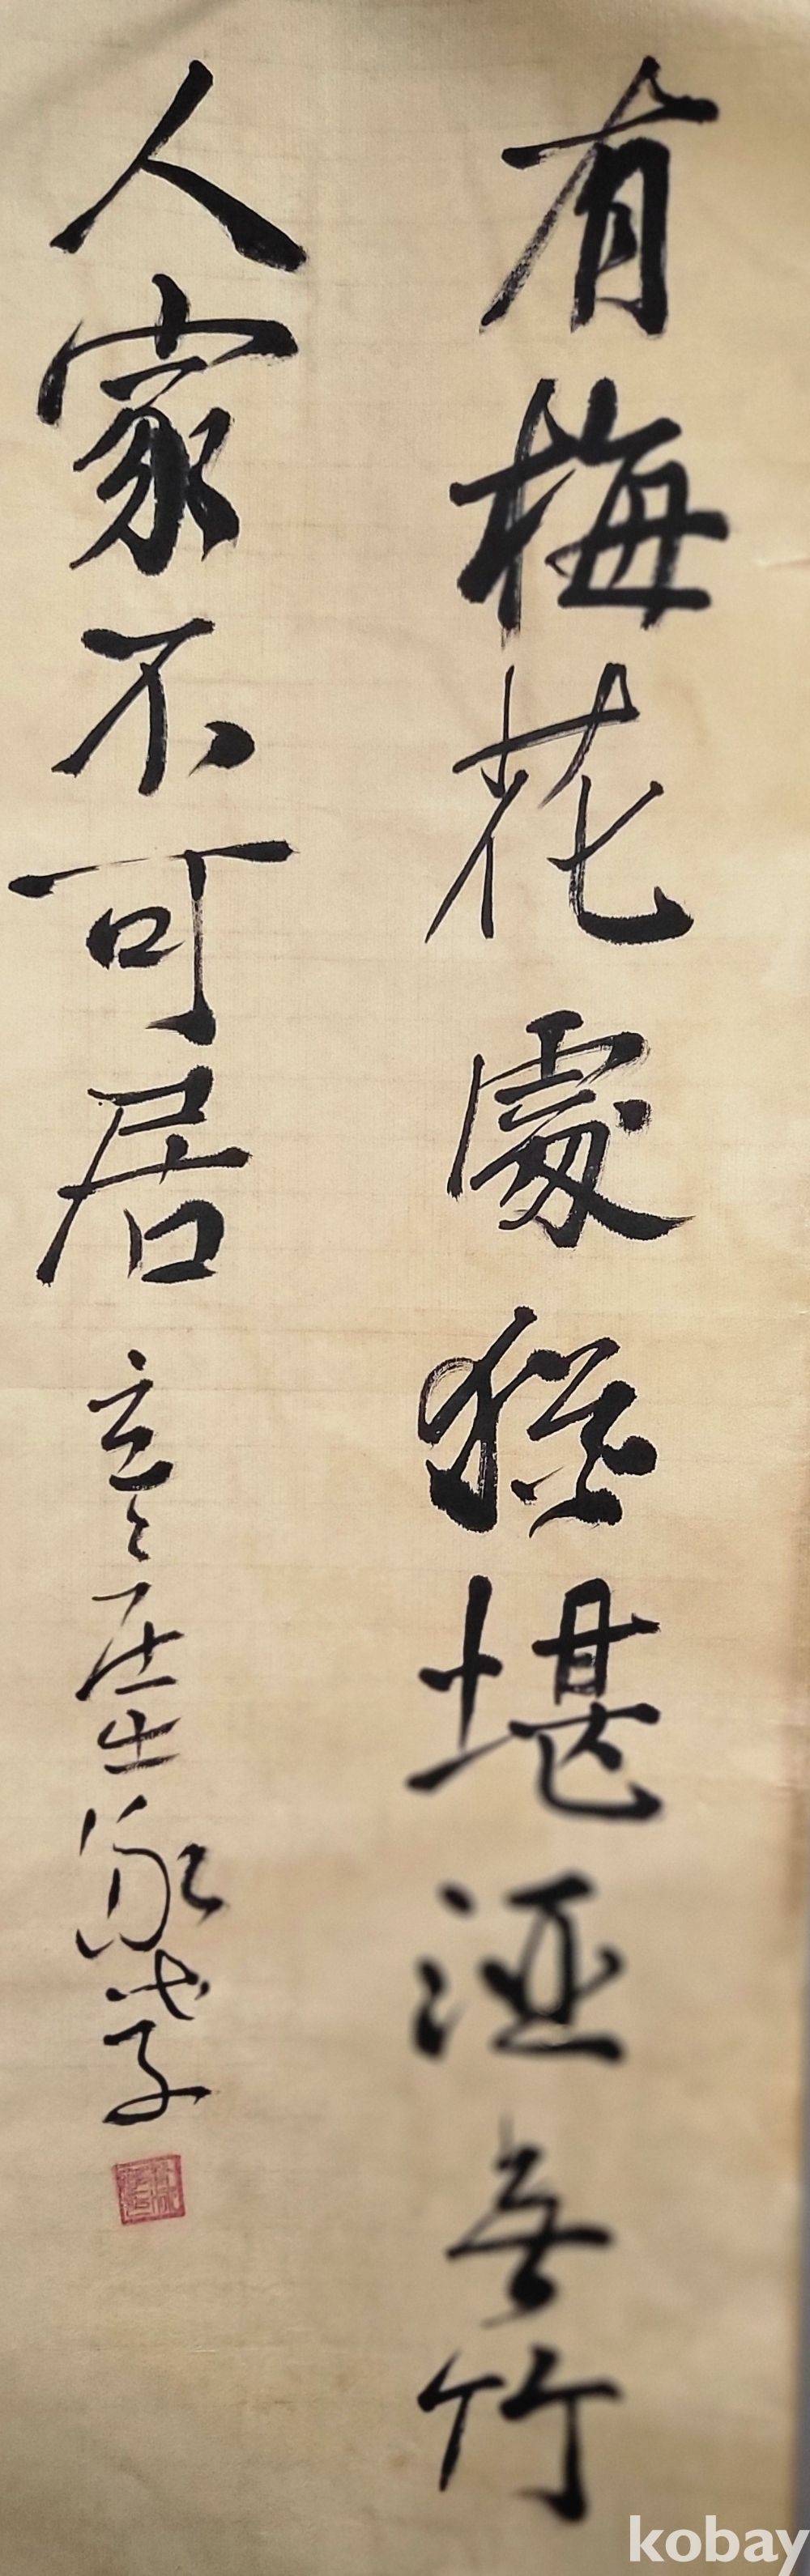 有梅花處猶堪酒無竹
人家不可居 玄〻居士泳孝
kobay